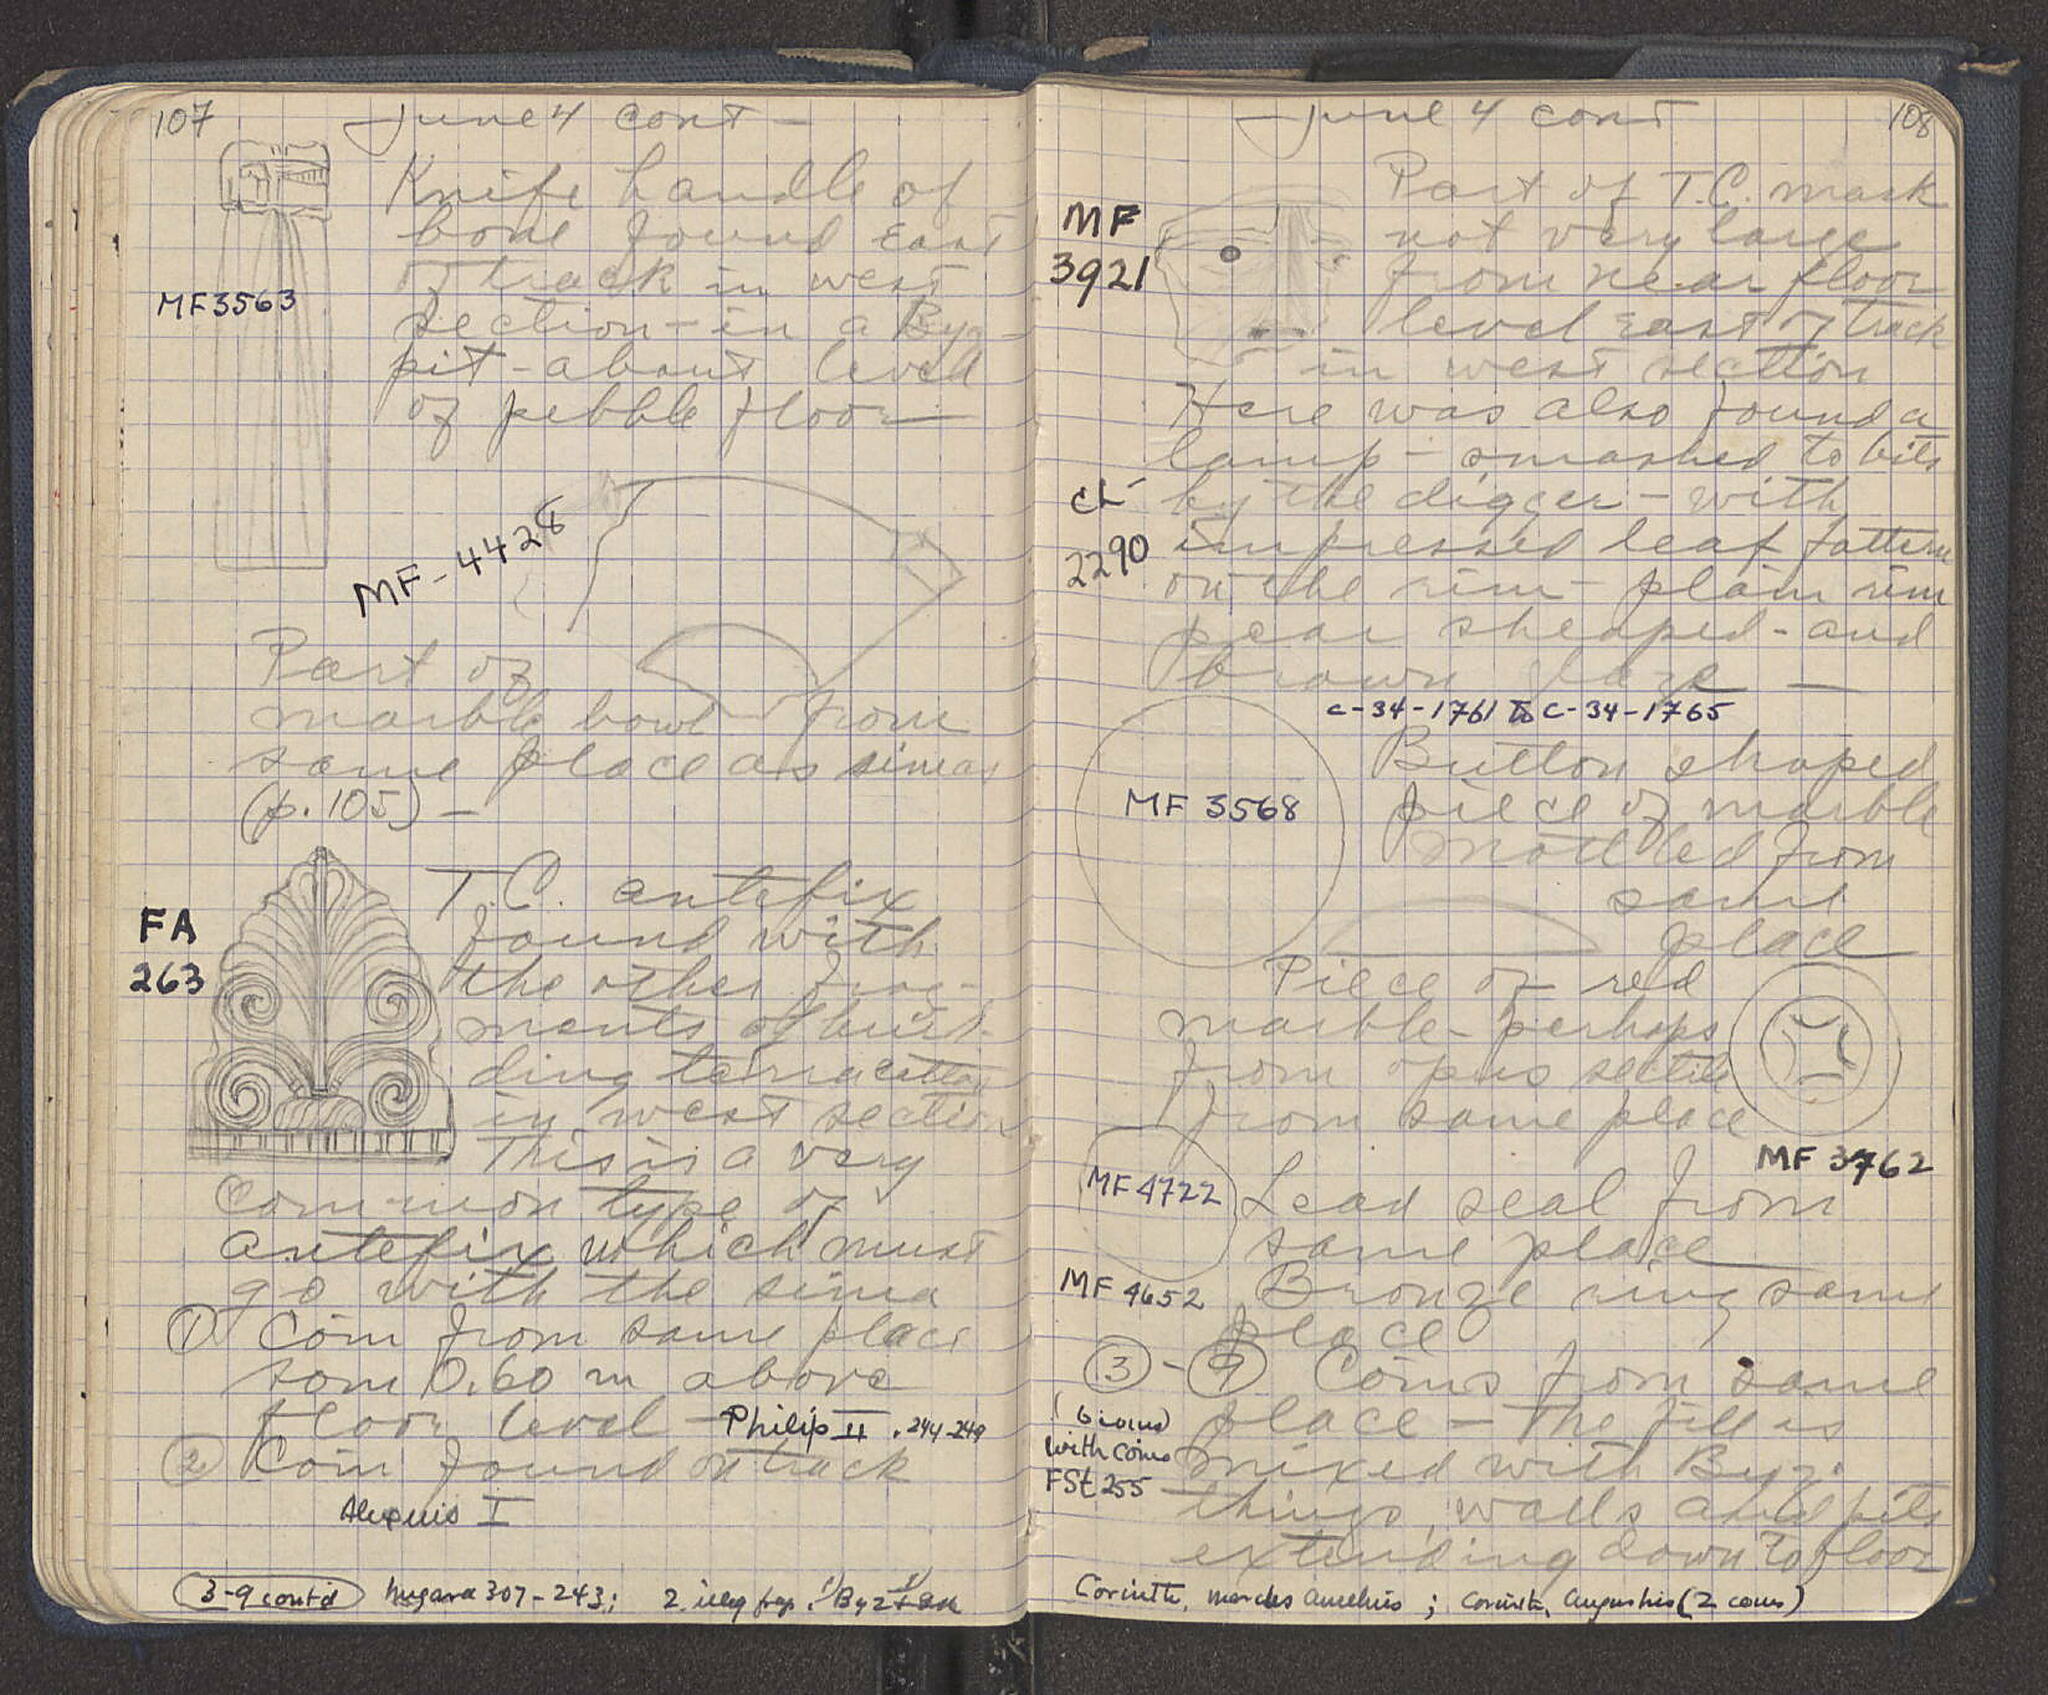 107
June 4 cont -
Knife handle of
bone found East
of track in west
MF3563
section - in a Byz -
pit - about level
of pebble floor
MF-4428
Part of
marble bowl from
same place as simas
(p. 105) -
T.C. antefix
FA
found with
263
the other frag-
ments of buil-
ding terracottas
in west section
This is a very
common type of
antefix which must
go with the sima
① Coin from same place
som 0.60 m above
floor level - Philip II . 244-249
② Coin found on track
Alexius I
3-9 cont'd Megara 307-243; 2 illeg frag.
108
June 4 cont
Part of T.C. mask
MF
not very large
3921
from near floor
level east of track
in west section
Here was also found a
lamp - smashed to bits
CL-
by the digger - with
2290
impressed leaf pattern
on the rim - plain rim
pear shaped - and
brown glaze -
C-34-1761 to C-34-1765
Button shaped
MF 3568
piece of marble
mottled from
same
place
Piece of red
marble - perhaps
from opus sectile
from same place
MF 3762
MF 4722
Lead seal from
same place
MF 4652
Bronze ring same
place
③ - ⑨ Coins from same
(6 coins)
place - The fill is
with coins
mixed with Byz.
FSt 255
things, walls and pits
extending down to floor
Corinth, Marcus Aurelius ; Corinth, Augustus (2 coins)